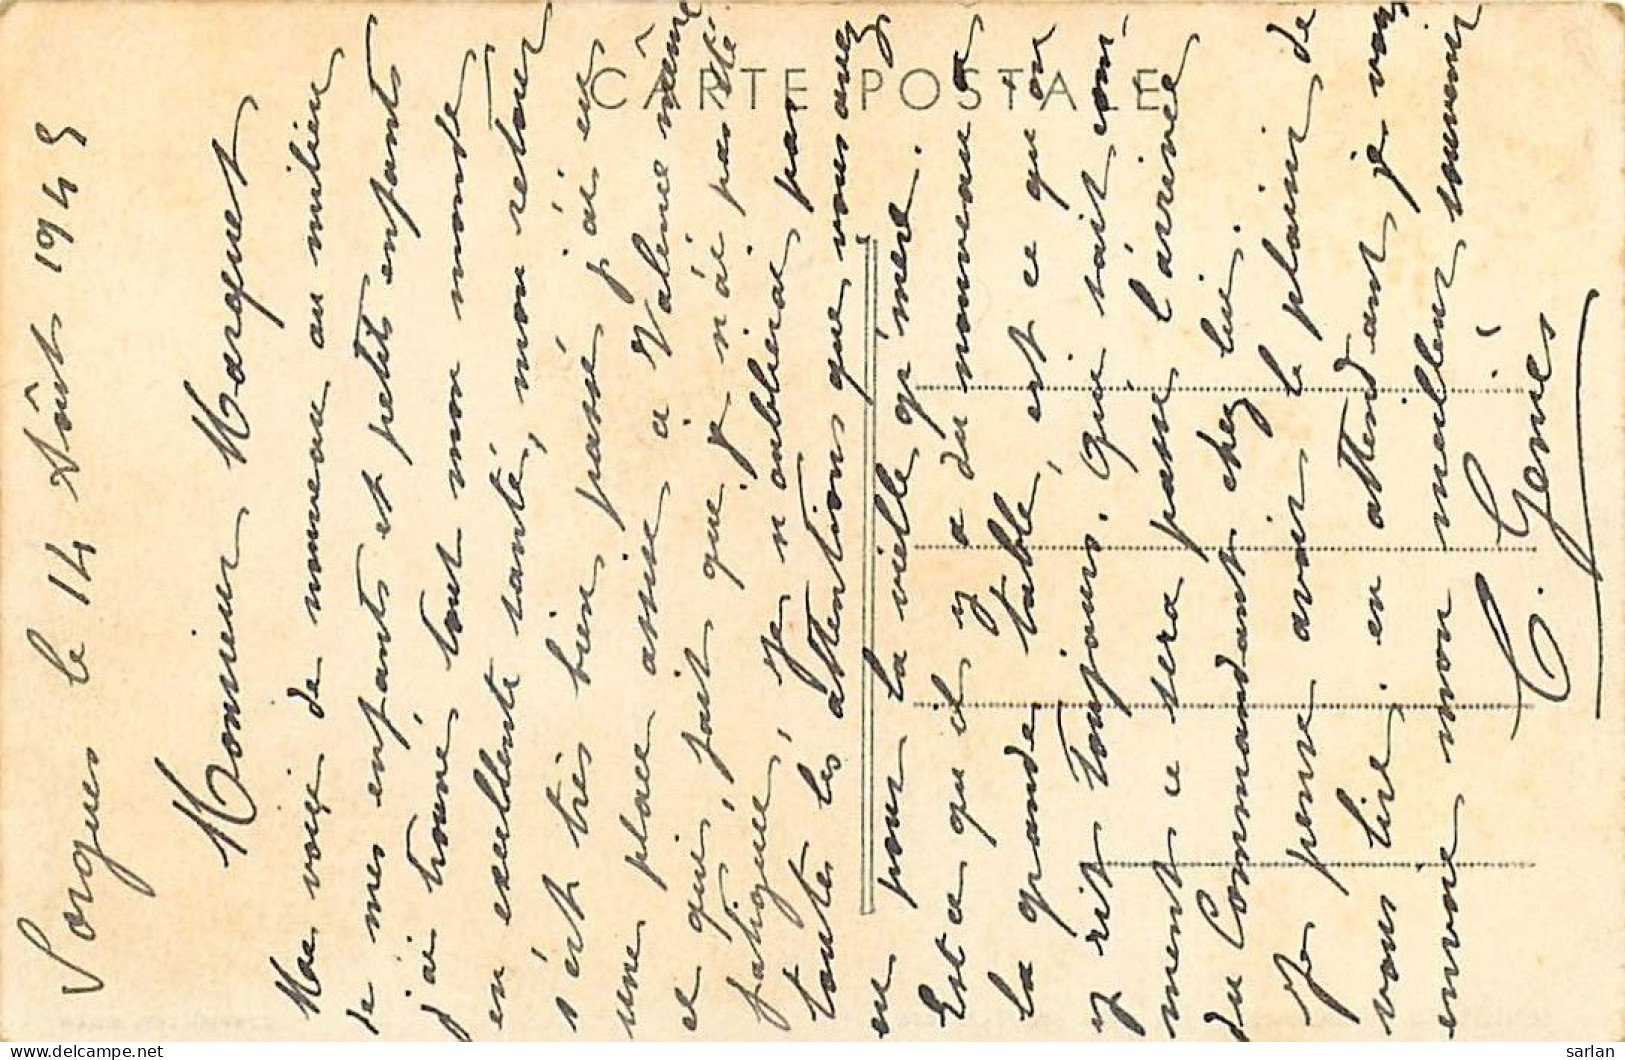 CARTE POSTALE
Sorgues le 14 Août 1945
Monsieur Marquet
Me voici de nouveau au milieu
de mes enfants et petits enfants
j'ai trouvé tout mon monde
en excellente santé, mon retour
s'est très bien passé j'ai eu
une place assise à Valence même
ce qui fait que je n'ai pas été
fatiguée, je n'oublierai pas
toutes les attentions que vous avez
eu pour la vieille g'mère.
Est ce qu'il y a du nouveau a
la grande table, est ce qu'on
y rit toujours. Qui sait com-
ment ce sera passé l'arrivée
du Commandant chez lui.
Je pense avoir le plaisir de
vous lire. en attendant je vous
envoie mon meilleur souvenir
C. Geniès
sarlan